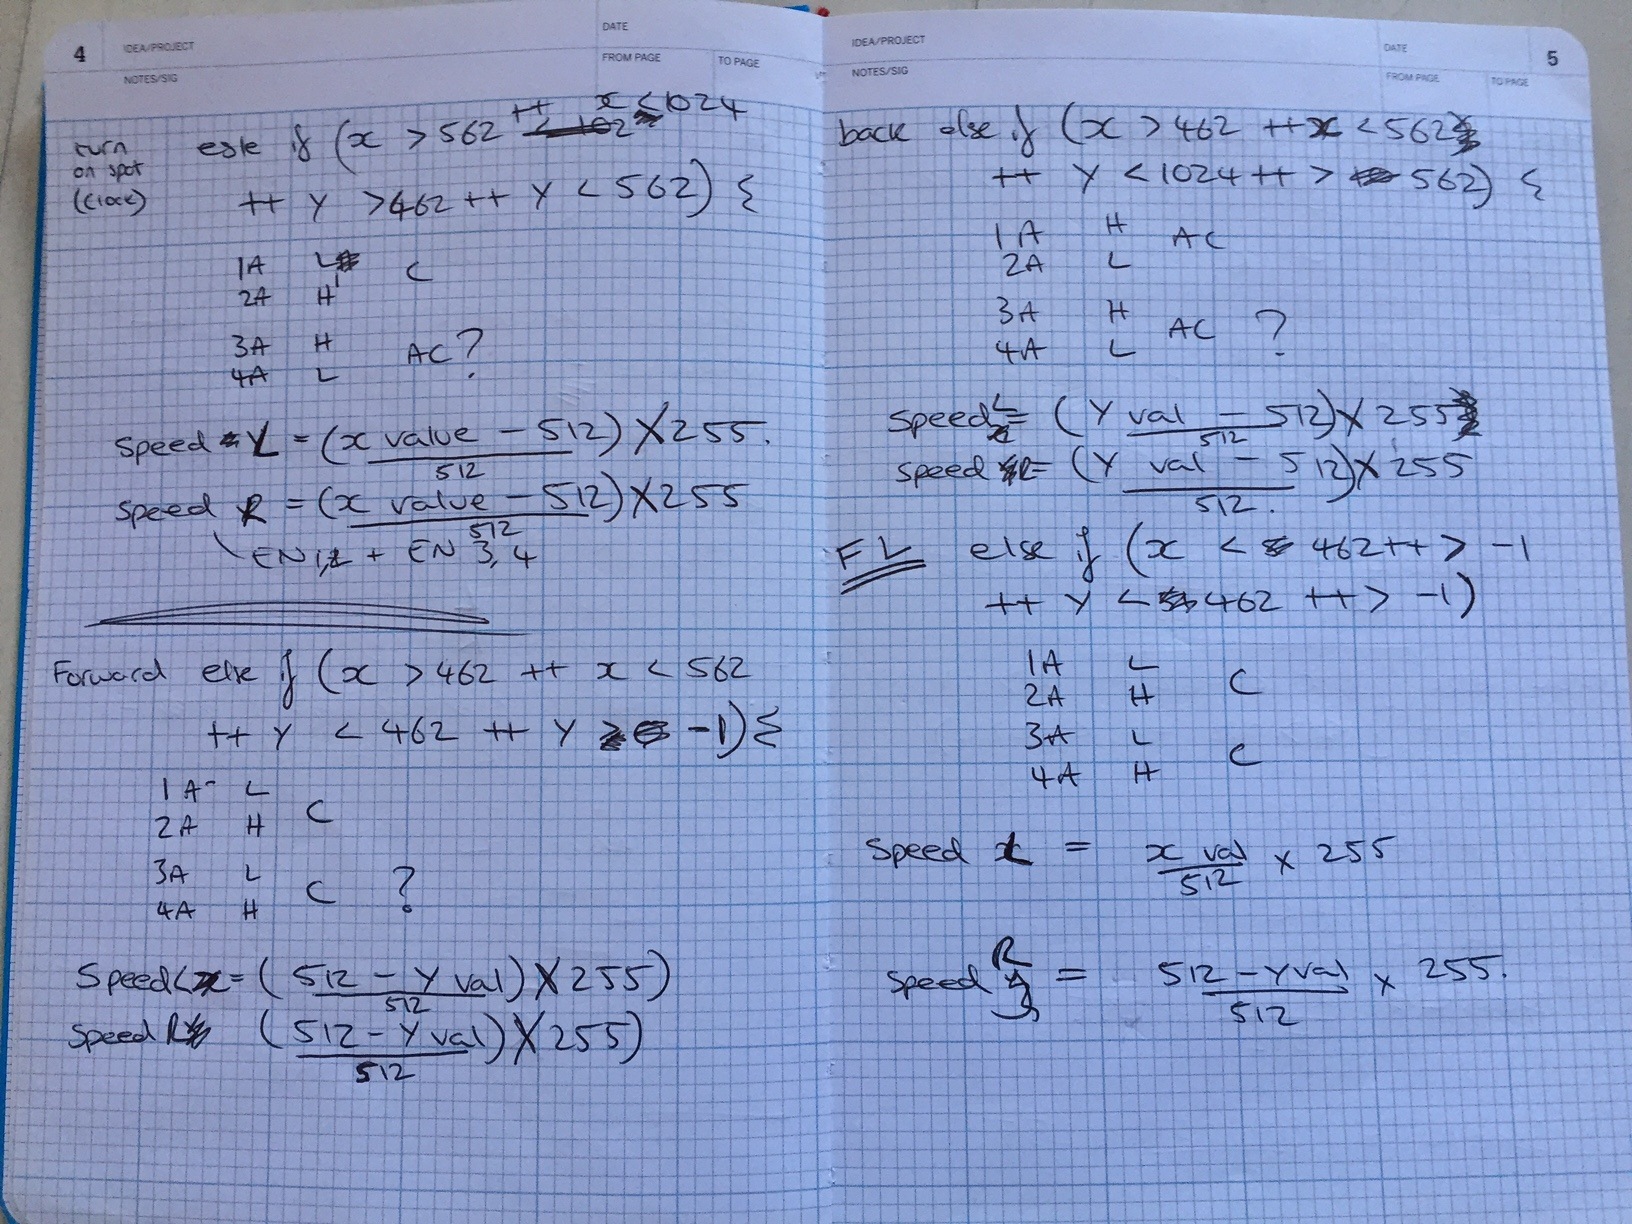 4
IDEA/PROJECT
DATE
NOTES/SIG
FROM PAGE
TO PAGE
turn on spot (clock)
esle if (x > 562 ++ x < 1024
++ Y > 462 ++ Y < 562) {
1A L
2A H
C
3A H
4A L
AC ?
Speed L = (x value - 512) X 255.
512
Speed R = (x value - 512) X 255
512
EN 1,2 + EN 3,4
Forward else if (x > 462 ++ x < 562
++ Y < 462 ++ Y > -1) {
1A L
2A H
C
3A L
4A H
C ?
Speed L = (512 - Y val) X 255)
512
Speed R (512 - Y val) X 255)
512
IDEA/PROJECT
DATE
5
NOTES/SIG
FROM PAGE
TO PAGE
back else if (x > 462 ++ x < 562
++ Y < 1024 ++ > 562) {
1A H
2A L
AC
3A H
4A L
AC ?
Speed L = (Y val - 512) X 255
512
Speed R = (Y val - 512) X 255
512.
FL else if (x < 462 ++ > -1
++ Y < 462 ++ > -1)
1A L
2A H
C
3A L
4A H
C
Speed L = x val x 255
512
Speed R = 512 - Y val x 255.
512